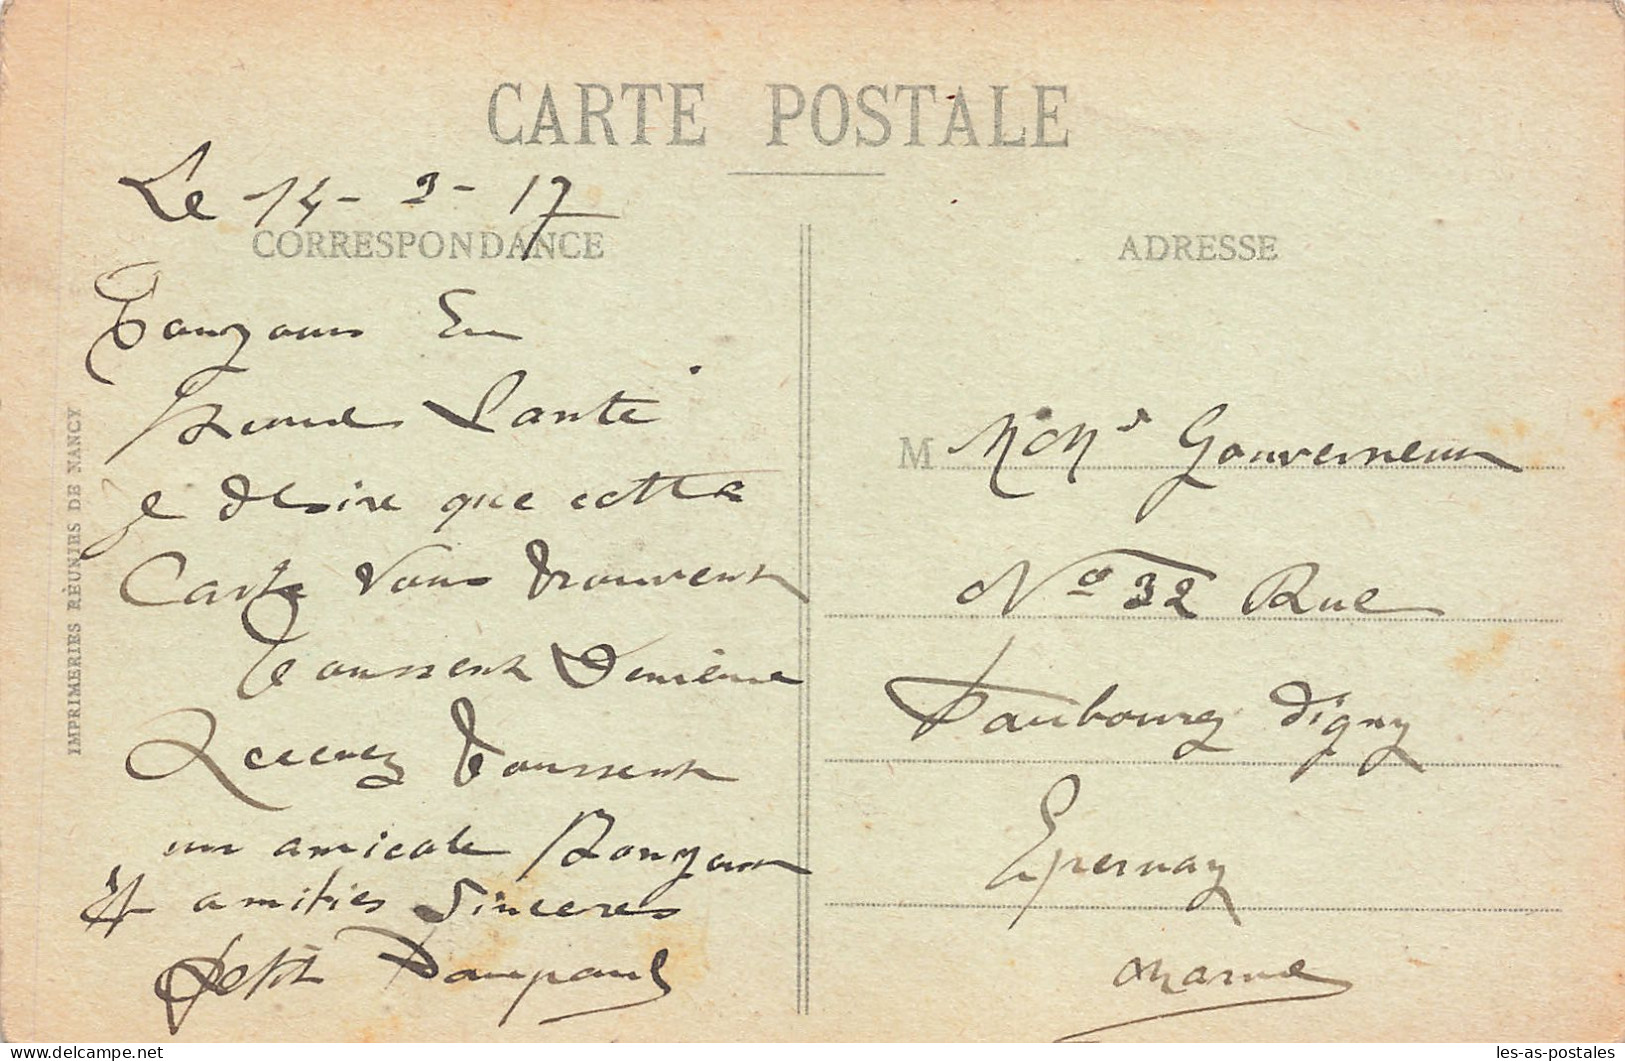 CARTE POSTALE
Le 14-3-17
CORRESPONDANCE
ADRESSE
Toujours En
Bonne Santé
je désire que cette
Carte vous trouvent
toussent de même
Recevez toussent
un amicale Bonjour
et amitiés Sincères
Petit
M M M.r Gouverneur
N° 32 Rue
Faubourg digny
Epernay
Marne
IMPRIMERIES RÉUNIES DE NANCY
les-as-postales